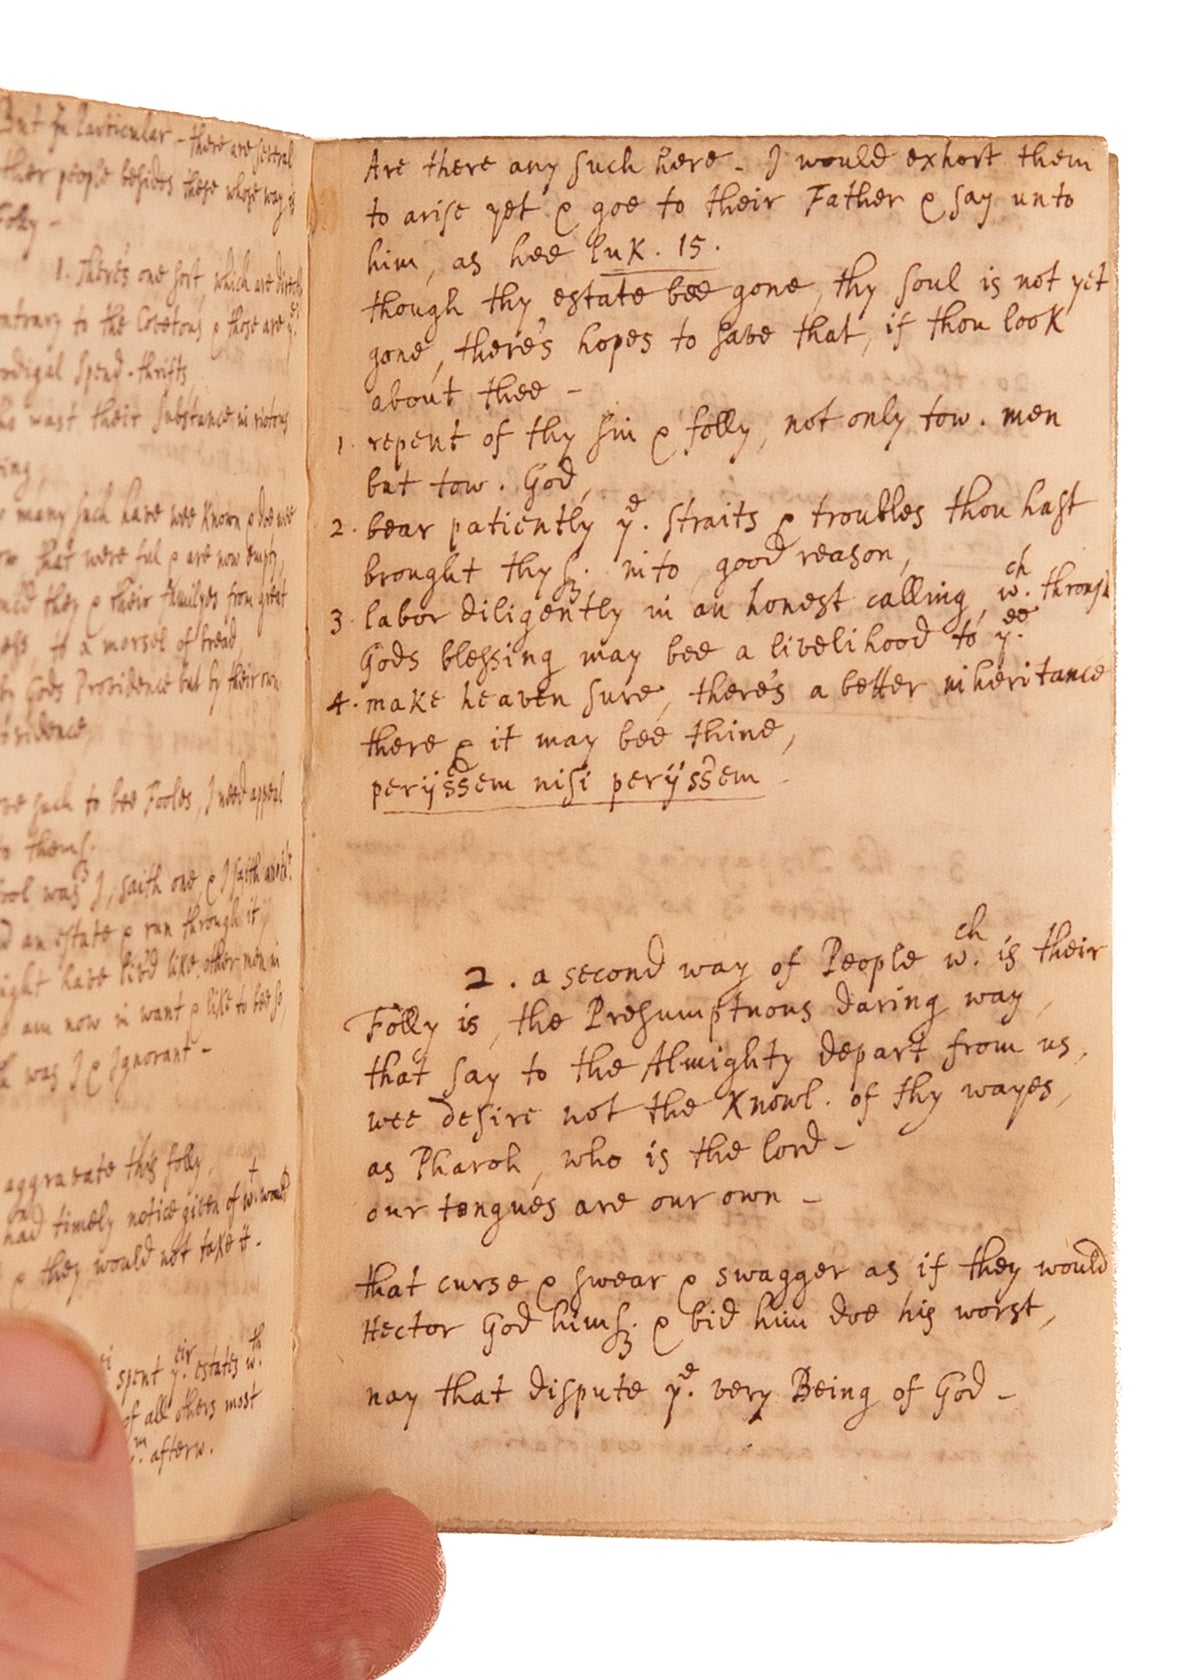 But in Particular - there are several
other people besides these whose way is
Folly -
1. There's one sort, which are directly
contrary to the Covetous & those are yᵉ.
prodigal Spend-thrifts
who wast their substance in riotous
ing,
many such have wee known & doe wee
that were ful & are now empty,
they & their familyes from great
ess, to a morsel of bread,
by Gods Providence but by their own
ovidence,
such to bee Fooles, I need appeal
to thems.
ool was I, saith one, & I saith
an estate & run through it,
ight have lived like other men in
am now in want & like to bee so
was I & Ignorant -
aggravate this folly,
had timely notice given of wᵗ. would
& they would not take it -
spent yᵉⁱʳ. estates wᵗʰ.
of all others most
afterw.
Are there any such here - I would exhort them
to arise yet & goe to their Father & say unto
him, as hee Luk. 15.
though thy estate bee gone, thy soul is not yet
gone, there's hopes to save that, if thou look
about thee -
1. repent of thy sin & folly, not only tow. men
but tow. God,
2. bear patiently yᵉ. straits & troubles thou hast
brought thys. into, good reason,
3. labor diligently in an honest calling, wᶜʰ. through
Gods blessing may bee a livelihood to yᵉᵉ.
4. make heaven sure, there's a better inheritance
there & it may bee thine,
perijssem nisi perijssem -
2. a second way of People wᶜʰ. is their
Folly is, the Presumptuous daring way,
that say to the Almighty depart from us,
wee desire not the Knowl. of thy wayes,
as Pharoh, who is the lord -
our tongues are our own -
that curse & swear & swagger as if they would
Hector God hims. & bid him doe his worst,
nay that dispute yᵉ. very Being of God -